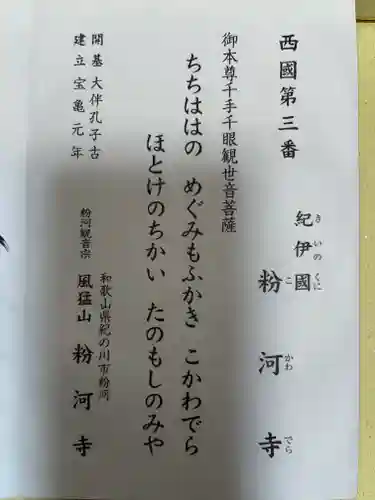 西國第三番
紀伊國 粉河寺
きいのくに こかわでら
御本尊千手千眼観世音菩薩
ちちははの めぐみもふかき こかわでら
ほとけのちかい たのもしのみや
開基 大伴孔子古
建立 宝亀元年
和歌山県紀の川市粉河
粉河観音宗 風猛山 粉河寺